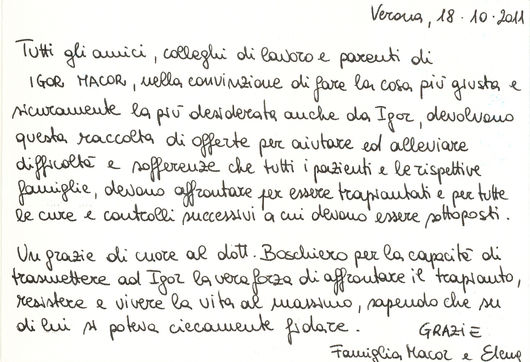 Verona, 18.10.2011
Tutti gli amici, colleghi di lavoro e parenti di
IGOR MACOR, nella convinzione di fare la cosa più giusta e
sicuramente la più desiderata anche da Igor, devolvono
questa raccolta di offerte per aiutare ed alleviare
difficoltà e sofferenze che tutti i pazienti e le rispettive
famiglie, devono affrontare per essere trapiantati e per tutte
le cure e controlli successivi a cui devono essere sottoposti.
Un grazie di cuore al dott. Boschiero per la capacità di
trasmettere ad Igor la vera forza di affrontare il trapianto,
resistere e vivere la vita al massimo, sapendo che su
di lui si poteva ciecamente fidare.
GRAZIE
Famiglia Macor e Elena